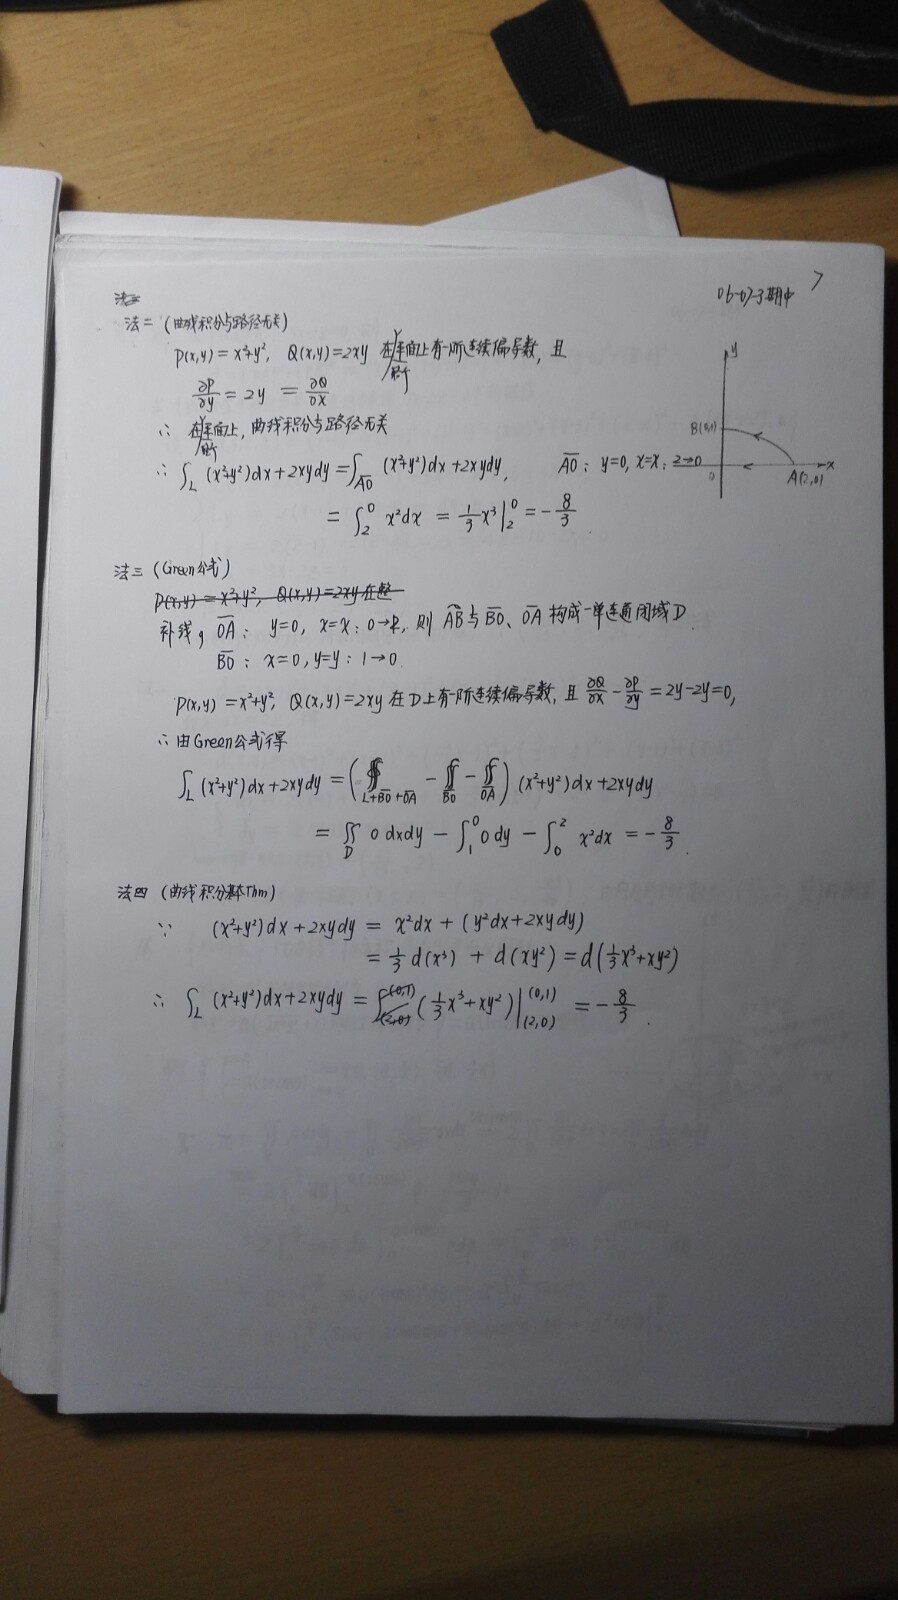 06-07-3期中 7
法二（曲线积分与路径无关）
P(x,y) = x²+y², Q(x,y)=2xy 在所平面上有一阶连续偏导数，且
∂P/∂y = 2y = ∂Q/∂x
∴ 在平面上，曲线积分与路径无关
∴ ∫_L (x²+y²)dx+2xydy = ∫_{AO} (x²+y²)dx+2xydy, AO: y=0, x=x: 2→0
= ∫₂⁰ x²dx = 1/3 x³|₂⁰ = -8/3.
y
B(0,1)
0
A(2,0)
x
法三（Green公式）
P(x,y) = x²+y², Q(x,y)=2xy在整
补线, OA: y=0, x=x: 0→2, 则 AB与BO、OA构成一单连通闭域D.
BO: x=0, y=y: 1→0.
P(x,y) = x²+y², Q(x,y)=2xy 在D上有一阶连续偏导数，且 ∂Q/∂x - ∂P/∂y = 2y-2y=0,
∴ 由Green公式得
∫_L (x²+y²)dx+2xydy = (∮_{L+BO+OA} - ∫_{BO} - ∫_{OA}) (x²+y²)dx+2xydy
= ∬_D 0 dxdy - ∫₁⁰ 0 dy - ∫₀² x²dx = -8/3.
法四（曲线积分基本Thm）
∵ (x²+y²)dx+2xydy = x²dx + (y²dx+2xydy)
= 1/3 d(x³) + d(xy²) = d(1/3x³+xy²)
∴ ∫_L (x²+y²)dx+2xydy = (1/3x³+xy²)|_{(2,0)}^{(0,1)} = -8/3.